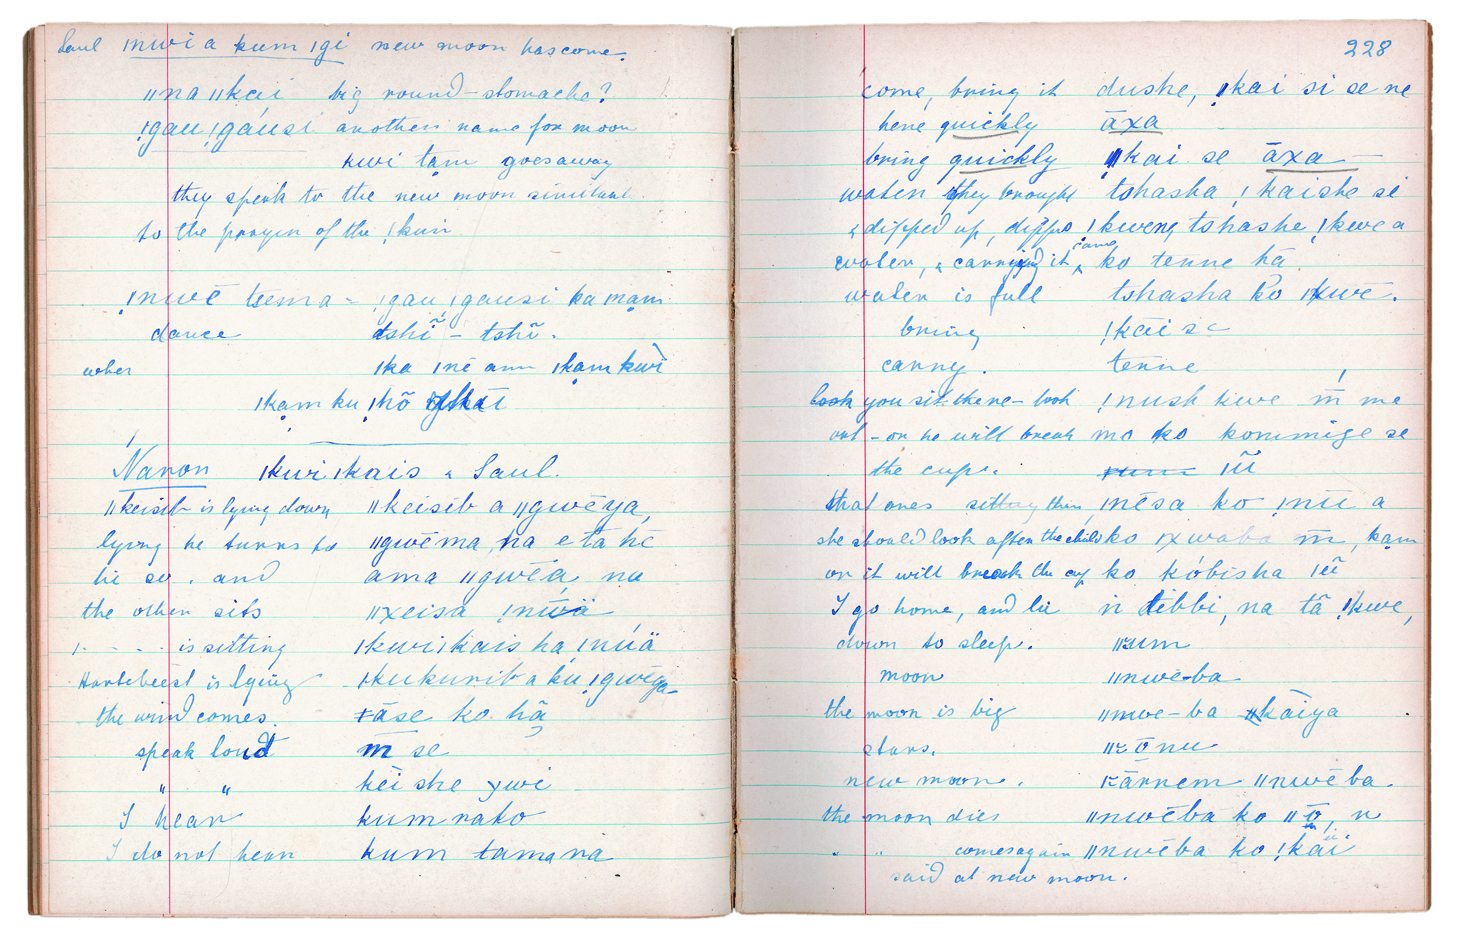 Saul ǀnwi a kum ǀgi new moon has come.
ǁna ǁkai big round-stomache?
ǃgau ǃgáusi another name for moon
kwi tam goes away
they speak to the new moon similar
to the prayer of the ǃkun
ǀnwē tsema - ǃgau ǃgausi ka mam
dance tshĩ - tshĩ.
ǀka ǀnē amm ǀkam kwi
ǀkam ku ǀhō
Naron ǀkwiǀkais & Saul.
ǁkeisib is lying down ǁkeisib a ǁgwēya,
lying he turns to ǁgwēma, na e tā hē
he so . and ama ǁgwēa, nu
the other sits ǁxeisa ǃnúä
" - - - is sitting ǀkwiǀkais ha ǃnúä
Hartebeest is lying ǀkukurib a ku ǃgwēya
the wind comes. ǂāse ko hã
speak loud m̄ se
" " kēi she χwi
I hear kum rako
I do not hear kum tamana
228
come, bring it dushe, ǃkai si se ne
here quickly āxa
bring quickly ǁkai se āxa —
water they brought tshasha, ǃkaishe si
& dipped up, dipper ǀkweng tshashe, ǃkwe a
water, & carrying it came ko tenne hā
water is full tshasha ko ǀkwē.
bring ǃkāi se
carry. tenne
look you sit there - look ǃnush kwe m̄ me
out - or he will break mo ko kommige se
the cup. ǀũ
that ones sitting there, ǃnēsa ko ǃnū a
she should look after the child ko ǀxwaba m̄, kam
or it will break the cup ko kóbisha ǀũ
I go home, and lie n tibbi, na tã ǃkwe,
down to sleep. ǁum
moon ǁnwe-ba
the moon is big ǁnwe-ba ǁkāiya
stars. ǁōnu
new moon. ǀārnem ǁnwēba.
the moon dies ǁnwēba ko ǁō, n
" " comes again ǁnwēba ko ǃkāi
said at new moon.